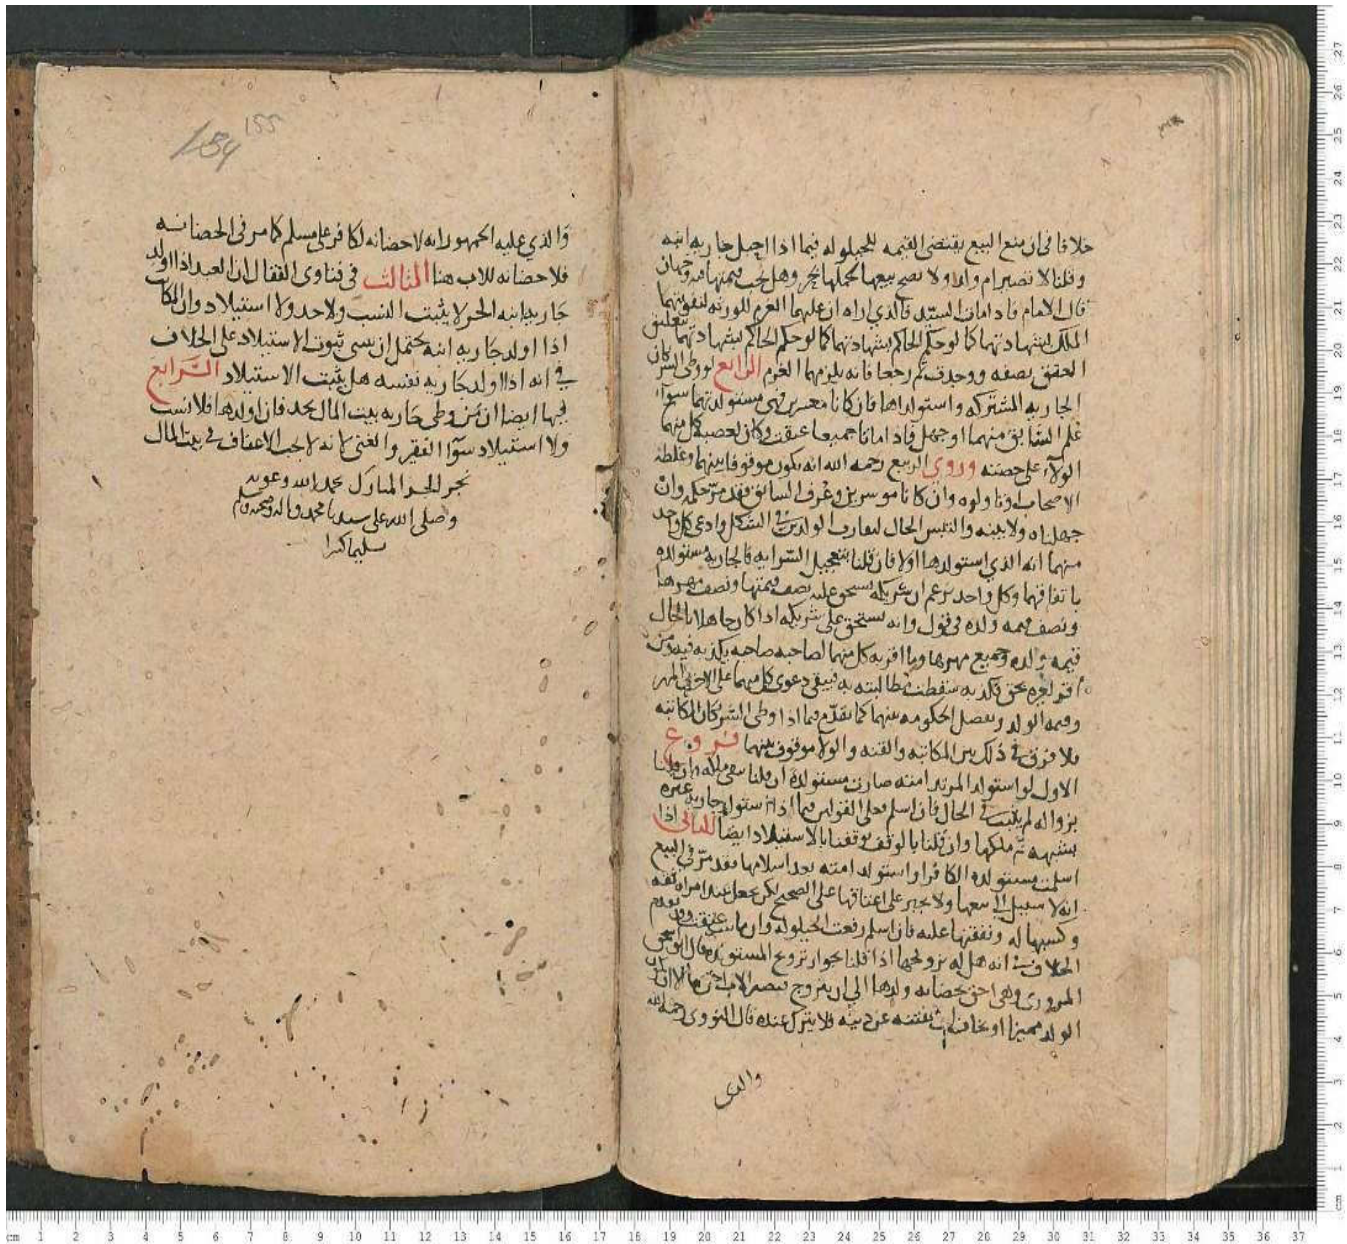 خلافا في ان منع البيع يقتضي القيمه للحيلوله فيما اذا احبل جاريه ابنه
وقلنا لا تصير ام ولد ولا يصح بيعها لحملها بحر وهل يجب قيمتها فيه وجهان
قال الامام فاذا مات السيد فالذي اراه ان عليهما الغرم للورثه لتفويتهما
الملك بشهادتهما كما لو حكم الحاكم بشهادتهما كما لو حكم الحاكم بشهادتهما بتعليق
العتق بصفه ووجدت ثم رجعا فانه يلزمهما الغرم الرابع لو وطئ الشريكان
الجاريه المشتركه واستولداها فان كانا معسرين فهي مستولدتهما سواء
علم السابق منهما او جهل فاذا ماتا جميعا عتقت وكان لعصبه كل منهما
الولاء على حصته وروي الربيع رحمه الله انه يكون موقوفا بينهما وغلطه
الاصحاب او تاولوه وان كانا موسرين وعرف السابق فقد مر حكمه وان
جهلناه ولا بينه والتبس الحال لتقارب الولدين في الشكل وادعى كل واحد
منهما انه الذي استولدها اولا فان قلنا بتعجيل السرايه فالجاريه مستولده
باتفاقهما وكل واحد يزعم ان شريكه يستحق عليه نصف قيمتها ونصف مهرها
ونصف قيمه ولده في قول وانه يستحق على شريكه اذا كان جاهلا بالحال
قيمه ولده وجميع مهرها وما اقر به كل منهما لصاحبه صاحبه يكذبه فيه ومن
اقر لغيره بحق فكذبه سقطت مطالبته به فيبقى دعوى كل منهما على الاخر المهر
وقيمه الولد وتفصل الحكومه بينهما كما تقدم فيما اذا وطئ الشريكان المكاتبه
فلا فرق في ذلك بين المكاتبه والقنه والولا موقوف بينهما فروع
الاول لو استولد المرتد امته صارت مستولده ان قلنا ببقى ملكه وان قلنا
بزواله لم يثبت في الحال فان اسلم فعلى القولين فيما اذا استولد جاريه غيره
بشبهه ثم ملكها وان قلنا بالوقف وقفنا بالاستيلاد ايضا الثاني اذا
اسلمت مستولده الكافر او استولد امته بعد اسلامها فقد مر في البيع
انه لا سبيل الى بيعها ولا يجبر على اعتاقها على الصحيح لكن تجعل عند امراه ثقه
وكسبها له ونفقتها عليه فان اسلم رفعت الحيلوله وان مات عتقت وقد تقدم
الخلاف في انه هل له تزويجها اذا قلنا بجواز تزويج المستولده قال ابو اسحق
المروزي وهي احق بحضانه ولدها الى ان تتزوج فيصير الاب احق به الا ان يكون
الولد مميزا او يخاف ان يفتنه عن دينه فلا يترك عنده قال النووي رحمه الله
والذي
155
154
والذي عليه الجمهور انه لا حضانه لكافر على مسلم كما مر في الحضانه
فلا حضانه للاب هنا الثالث في فتاوى القفال ان العبد اذا اولد
جاريه ابنه الحر لا يثبت النسب ولا حد ولا استيلاد وان المكاتب
اذا اولد جاريه ابنه يحتمل ان يبنى ثبوت الاستيلاد على الخلاف
في انه اذا اولد جاريه نفسه هل يثبت الاستيلاد الرابع
فيها ايضا ان من وطئ جاريه بيت المال يحد فان اولدها فلا نسب
ولا استيلاد سواء الفقير والغني لانه لا يجب الاعفاف في بيت المال
نجز الجزء المبارك بحمد الله وعونه
وصلى الله على سيدنا محمد واله وصحبه وسلم
تسليما كثيرا